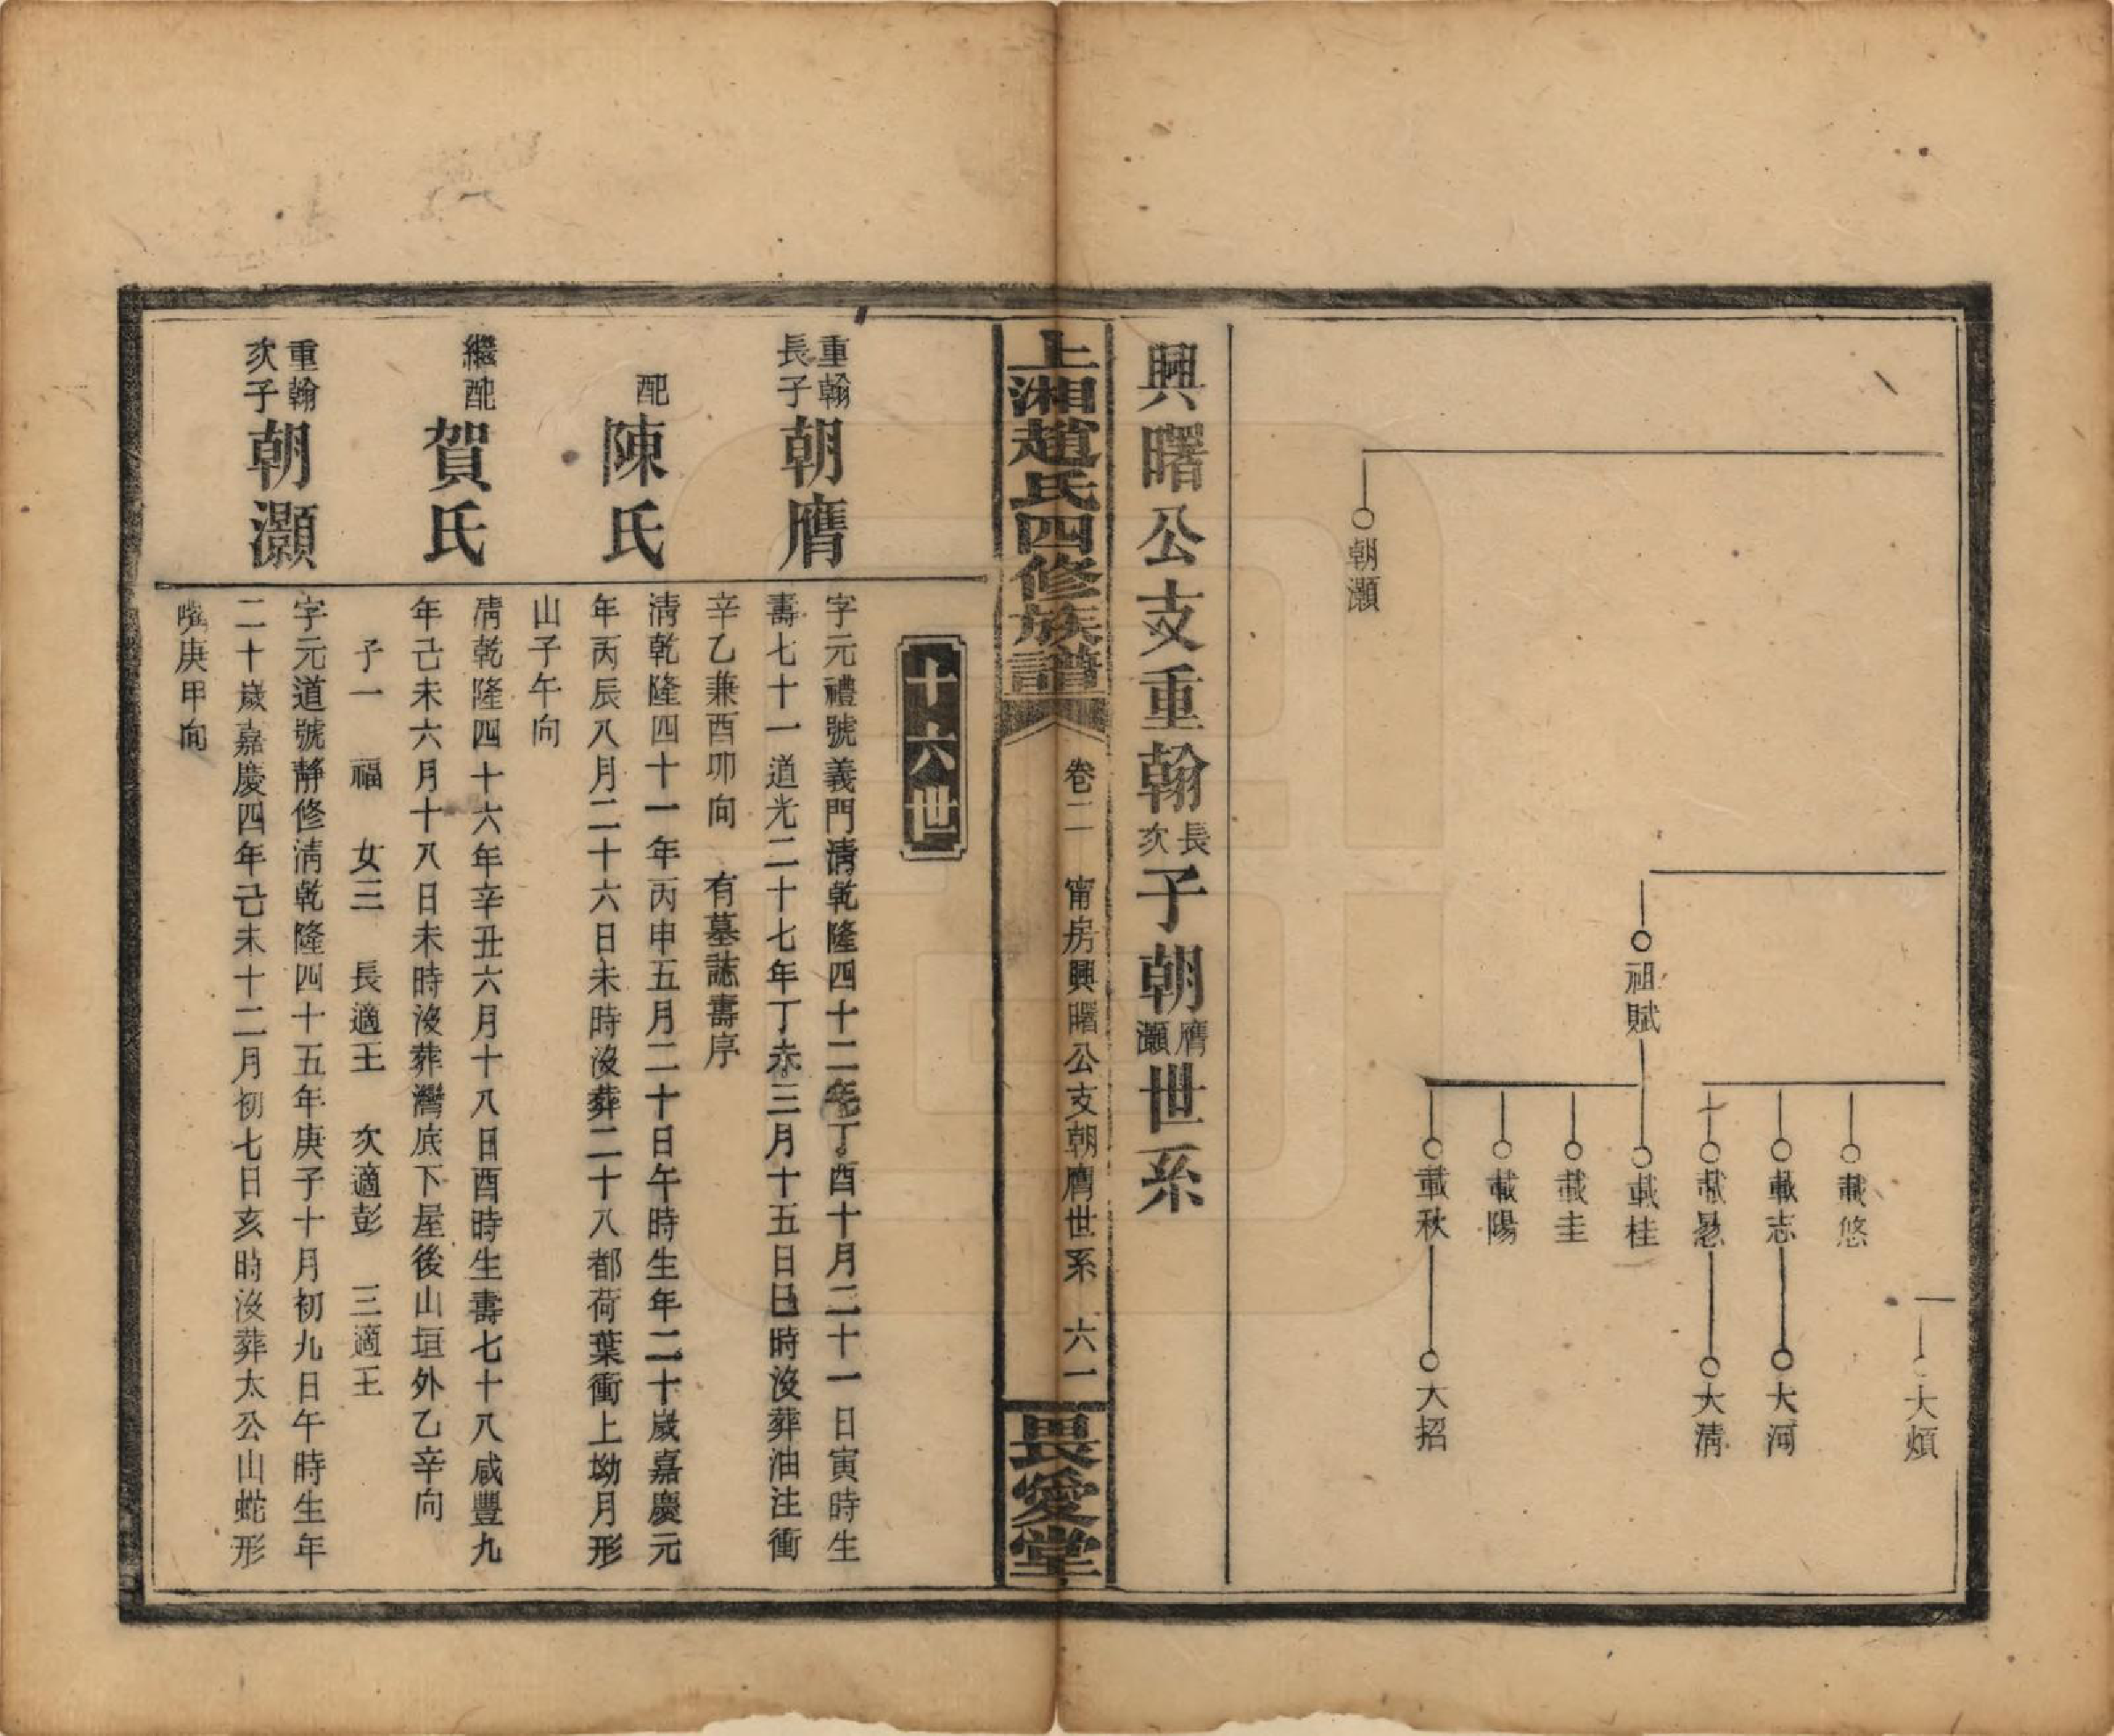 大煩
載悠
載志
大河
載懸
大清
祖賦
載桂
載圭
載陽
載秋
大招
朝灝
興曙公支重翰長次子朝膺灝世系
上湘趙氏四修族譜
卷二 甯房興曙公支朝膺世系 六一
畏愛堂
十六世
重翰
長子
朝膺
字元禮號義門清乾隆四十二年丁酉十月二十一日寅時生
壽七十一道光二十七年丁未三月十五日巳時沒葬油注衝
辛乙兼酉卯向 有墓誌壽序
配
陳氏
清乾隆四十一年丙申五月二十日午時生年二十歲嘉慶元
年丙辰八月二十六日未時沒葬二十八都荷葉衝上坳月形
山子午向
繼配
賀氏
清乾隆四十六年辛丑六月十八日酉時生壽七十八咸豐九
年己未六月十八日未時沒葬灣底下屋後山垣外乙辛向
子一 福 女三 長適王 次適彭 三適王
重翰
次子
朝灝
字元道號靜修清乾隆四十五年庚子十月初九日午時生年
二十歲嘉慶四年己未十二月初七日亥時沒葬太公山蛇形
嘴庚甲向